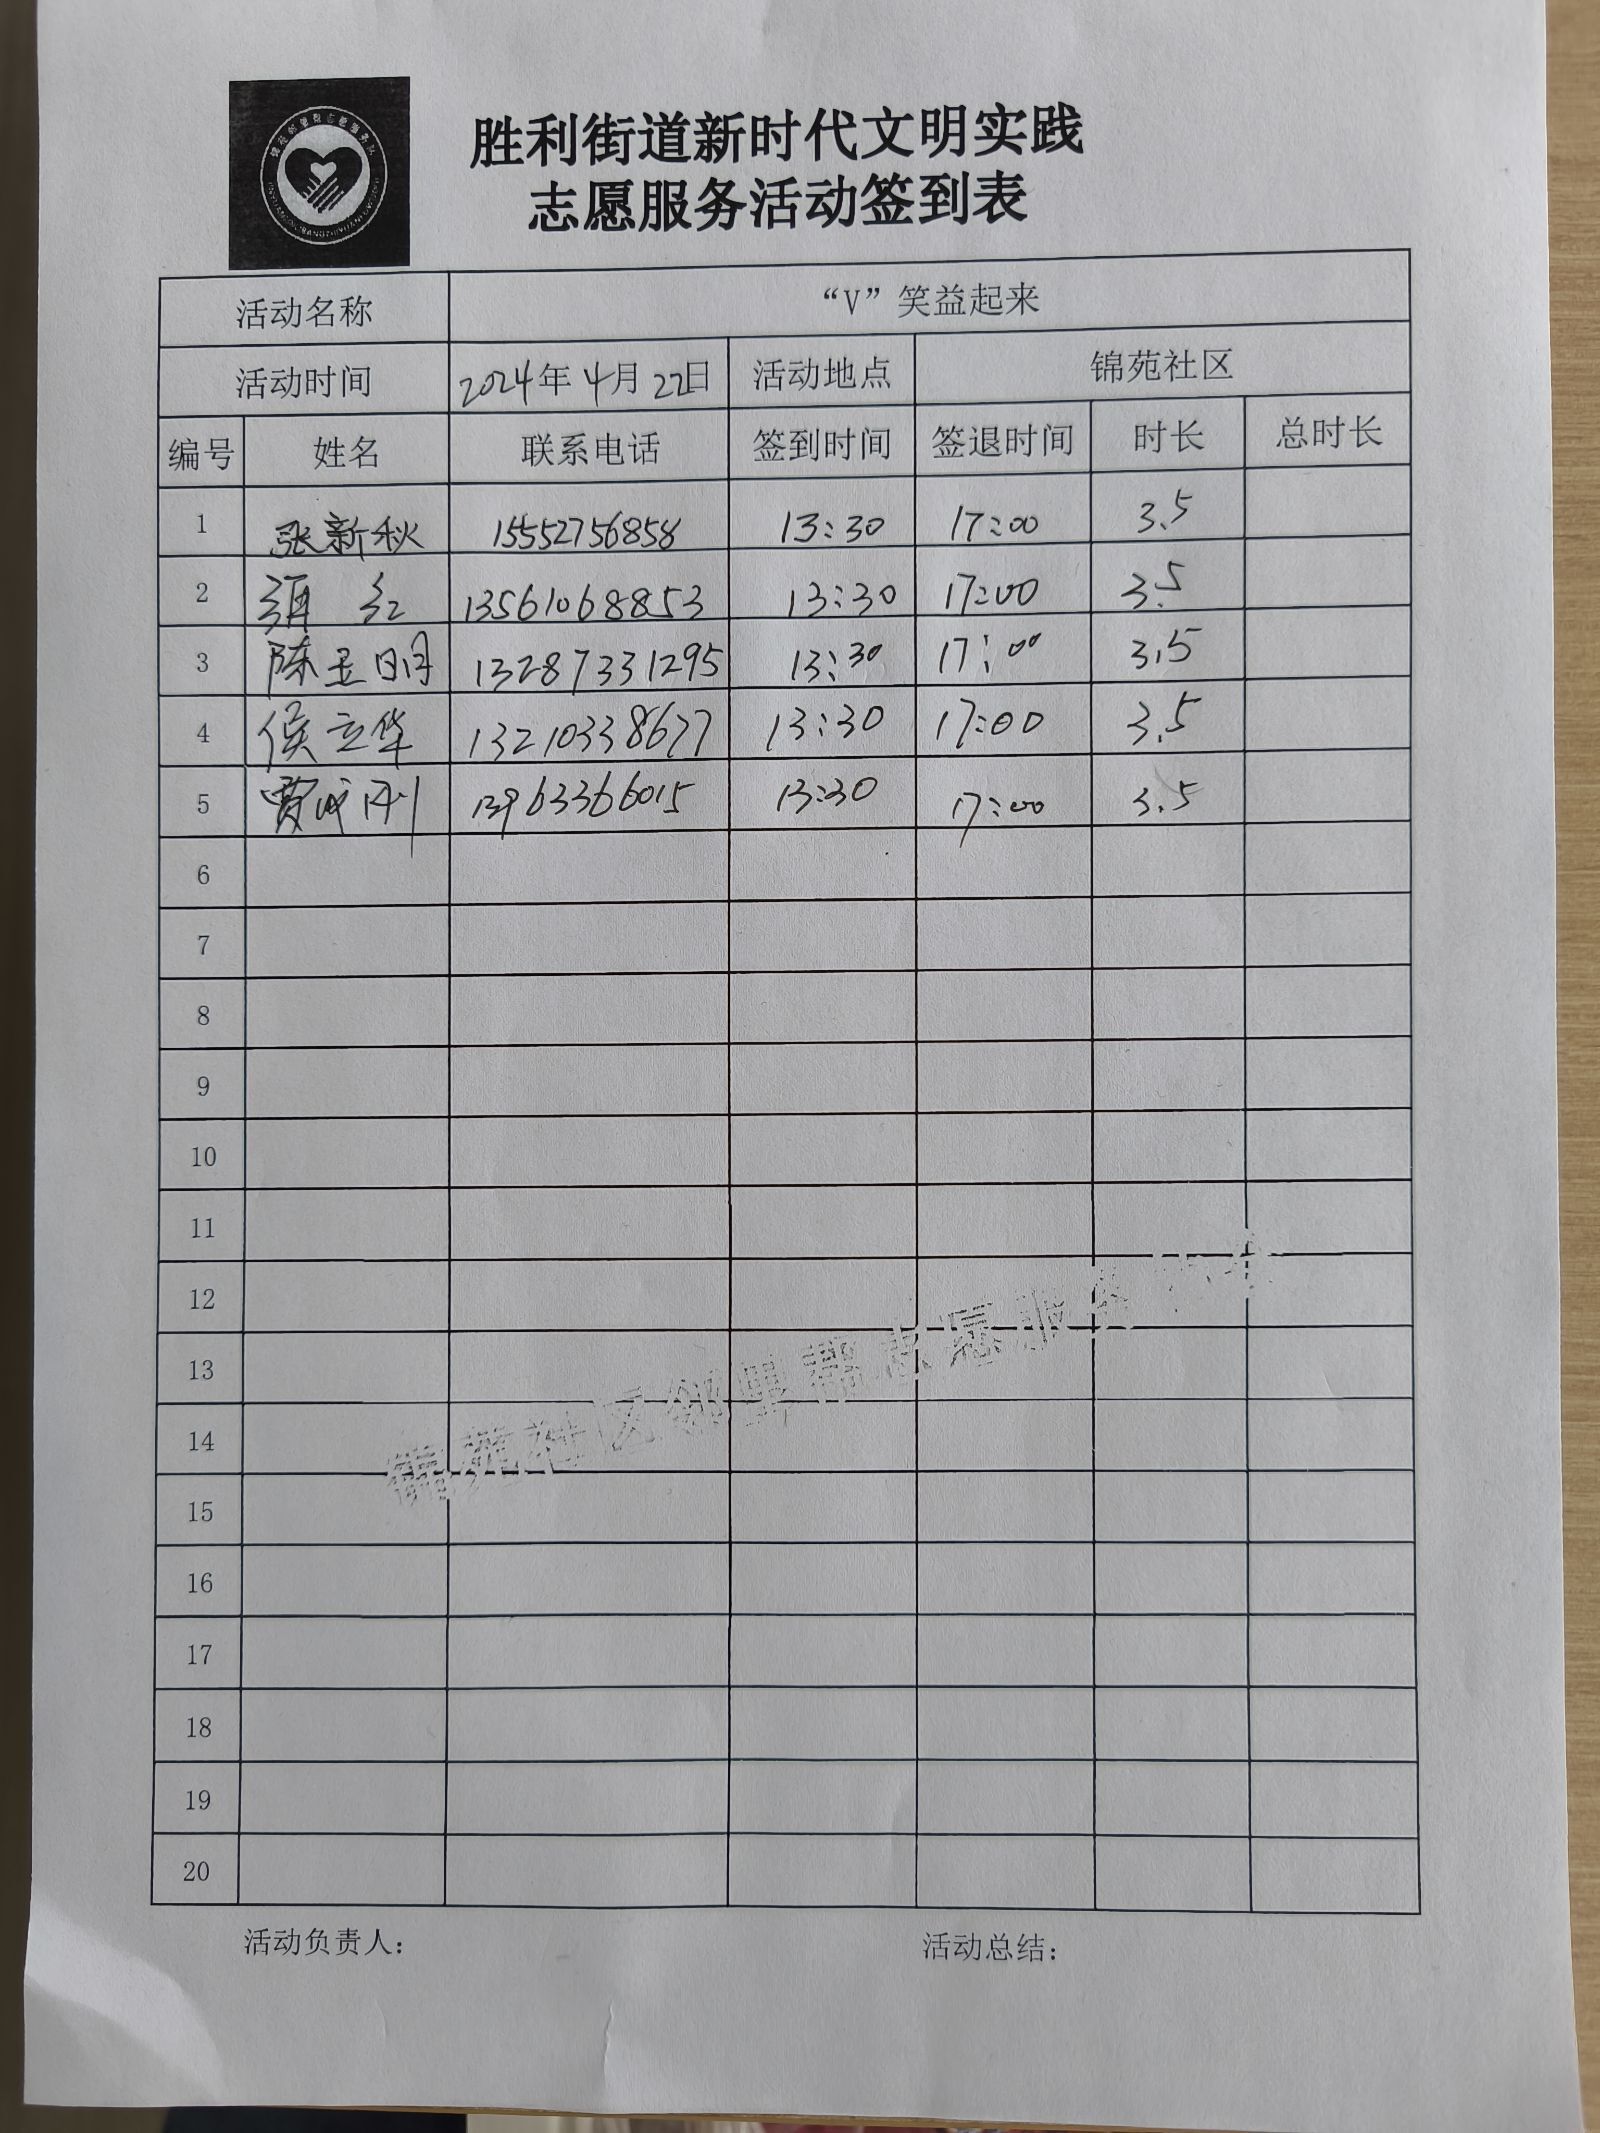 胜利街道新时代文明实践
志愿服务活动签到表
活动名称 “V”笑益起来
活动时间 2024年4月22日 活动地点 锦苑社区
编号 姓名 联系电话 签到时间 签退时间 时长 总时长
1 张新秋 15552756858 13:30 17:00 3.5
2 红 13561068853 13:30 17:00 3.5
3 陈玉明 13287331295 13:30 17:00 3.5
4 侯立华 13210338677 13:30 17:00 3.5
5 贾成刚 13963366015 13:30 17:00 3.5
6
7
8
9
10
11
12
13
锦苑社区邻里帮志愿服务
14
15
16
17
18
19
20
活动负责人： 活动总结：